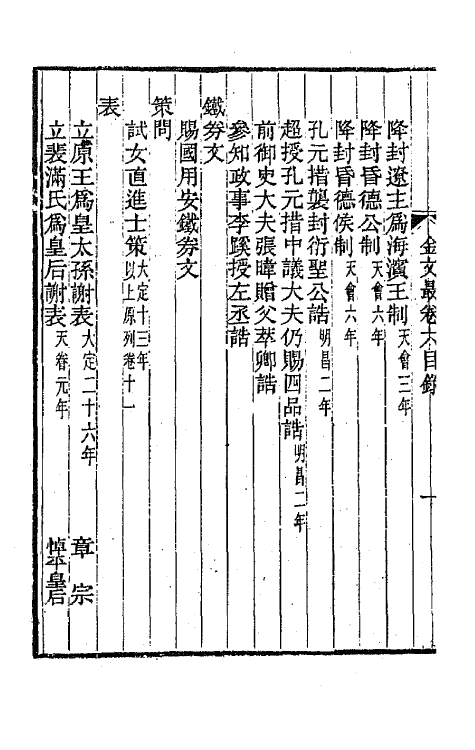 金文最卷六目錄 一
降封遼主爲海濱王制天會三年
降封昏德公制天會六年
降封昏德侯制天會六年
孔元措襲封衍聖公誥明昌二年
超授孔元措中議大夫仍賜四品誥明昌二年
前御史大夫張暐贈父萃卿誥
參知政事李蹊授左丞誥
鐵券文
賜國用安鐵券文
策問
試女直進士策大定十三年以上原列卷十一
表
立原王爲皇太孫謝表大定二十六年 章宗
立裴滿氏爲皇后謝表天眷元年 悼平皇后